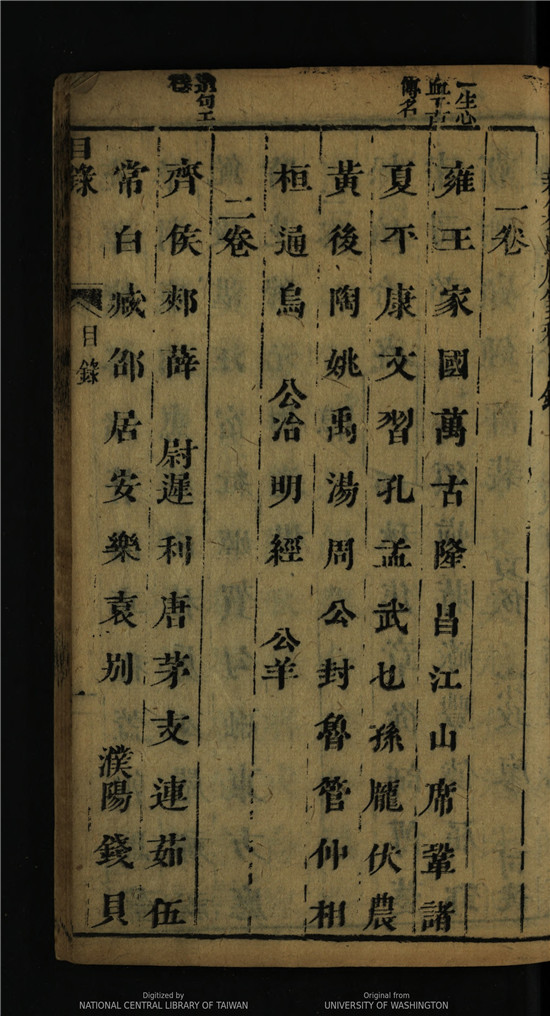 一生心
血千古
傳名
一卷
雍王家國萬古隆昌江山席鞏諸
夏平康文習孔孟武乜孫龐伏農
黃後陶姚禹湯周公封魯管仲相
桓通烏公冶明經公羊
二卷
齊侯郟薛尉遲利唐茅支連茹伍
常白臧郤居安樂袁別濮陽錢貝
目錄
目錄
一
Digitized by
NATIONAL CENTRAL LIBRARY OF TAIWAN
Original from
UNIVERSITY OF WASHINGTON